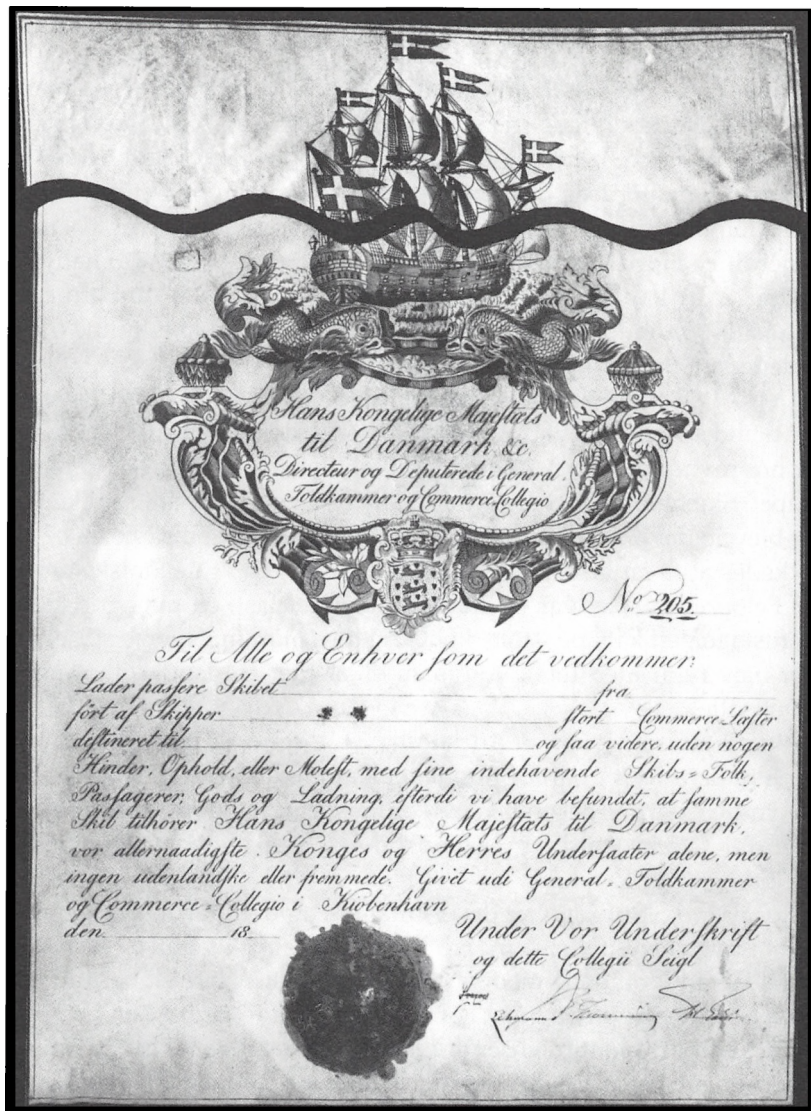 Hans Kongelige Majestæts
til Danmark &c.
Directeur og Deputerede i General-
Toldkammer og Commerce-Collegio
No 205.
Til Alle og Enhver som det vedkommer:
Lader passere Skibet fra
ført af Skipper stort Commerce-Læster
destineret til og saa videre, uden nogen
Hinder, Ophold, eller Molest, med sine indehavende Skibs-Folk,
Passagerer, Gods og Ladning, efterdi vi have befundet, at samme
Skib tilhörer Hans Kongelige Majestæts til Danmark,
vor allernaadigste Konges og Herres Undersaater alene, men
ingen udenlandske eller fremmede. Givet udi General-Toldkammer
og Commerce-Collegio i Kiöbenhavn
den 18
Under Vor Underskrift
og dette Collegii Seigl